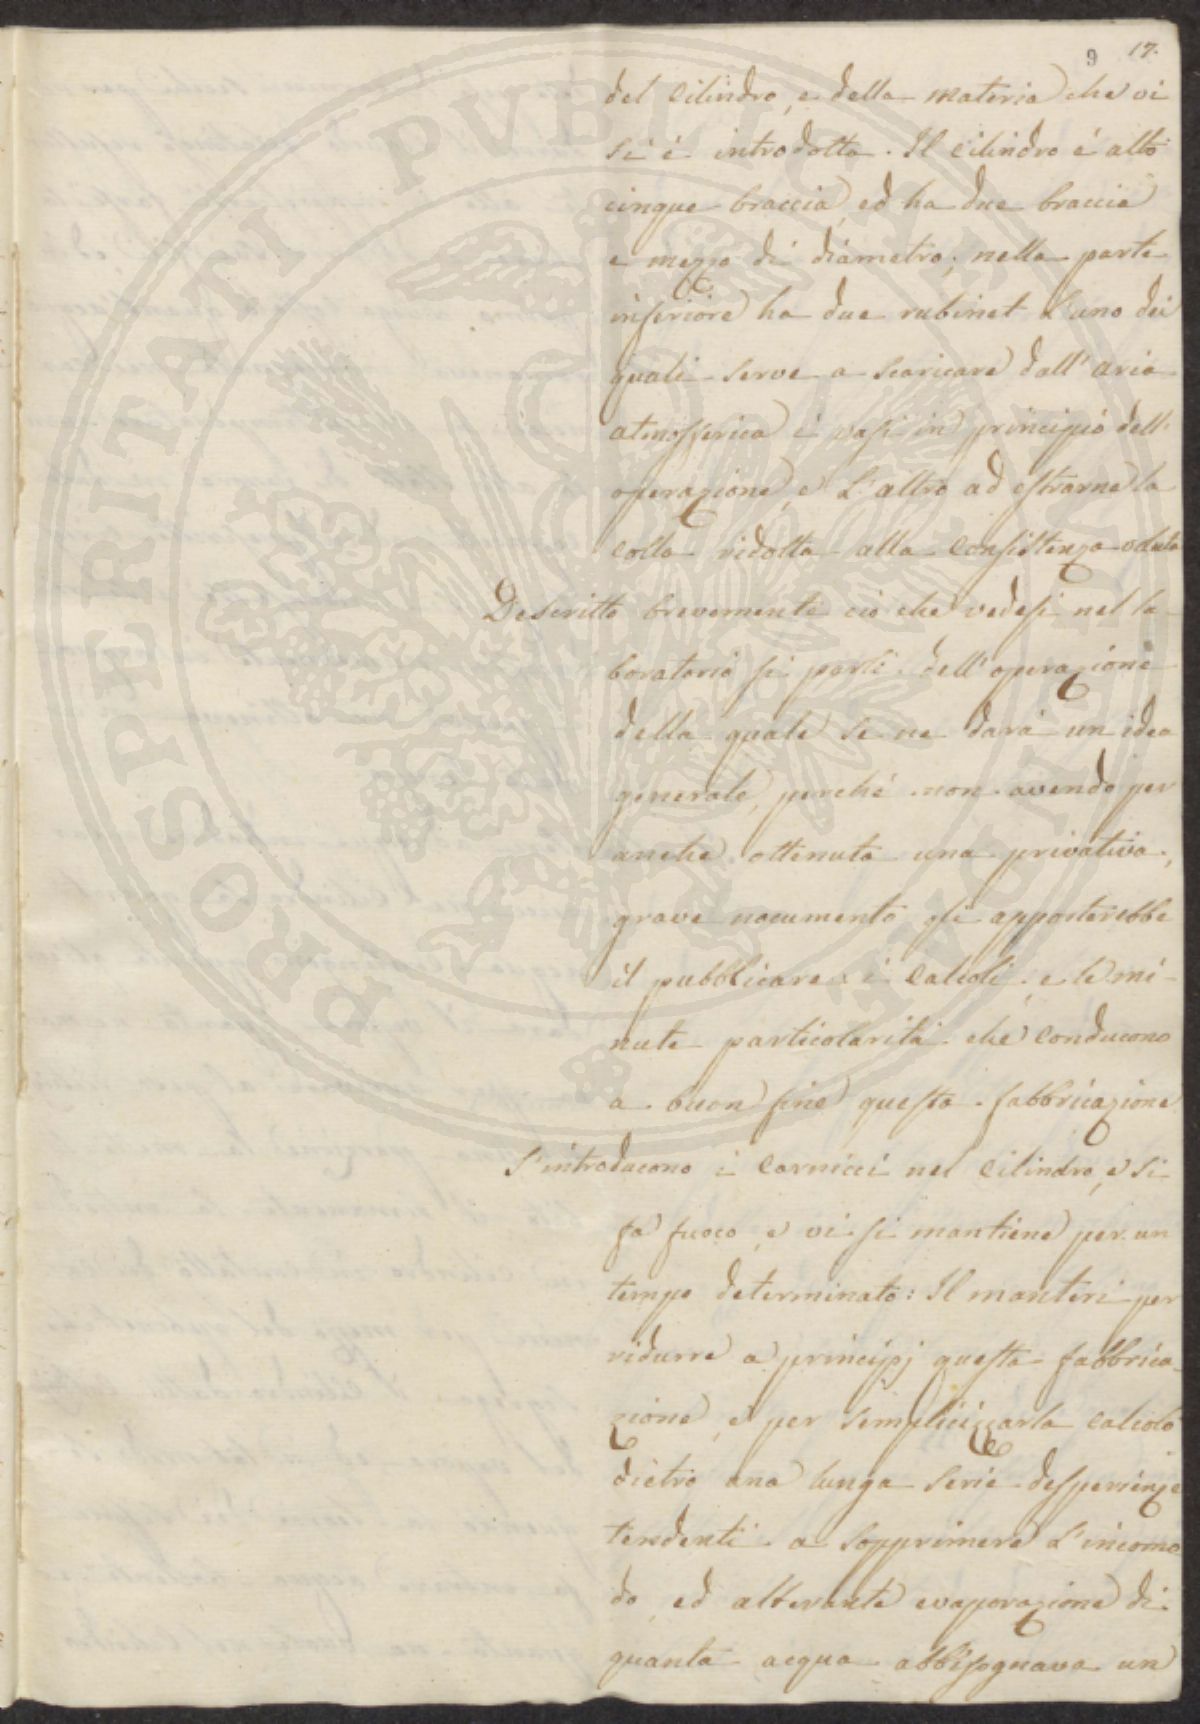 9 17.
del Cilindro, e della materia che vi
si è introdotta. Il Cilindro è alto
cinque braccia, ed ha due braccia
e mezzo di diametro; nella parte
inferiore ha due rubinet l'uno dei
quali serve a scaricare dall'aria
atmosferica i vasi in principio dell'
operazione, e L'altro ad estrarne la
colla ridotta alla Consistenza voluta
Descritto brevemente ciò che vedesi nel la-
boratorio si parli dell'operazione
della quale se ne darà un idea
generale, perchè non avendo per
anche ottenuta una privativa,
grave nocumento gli apporterebbe
il pubblicare i Calcoli, e le mi-
nute particolarità che Conducono
a buon fine questa fabbricazione
S'introducono i Carnicci nel Cilindro, e si
fa fuoco, e vi si mantiene per un
tempo determinato: Il Manteri per
ridurre a principj questa fabbrica-
zione, e per simplicizzarla Calcolò
dietro una lunga serie desperienze
tendenti a sopprimere L'incomo
do, ed alterante evaporazione di
quanta acqua abbisognava un
PROSPERITATI PVBLICAE AVGENDAE